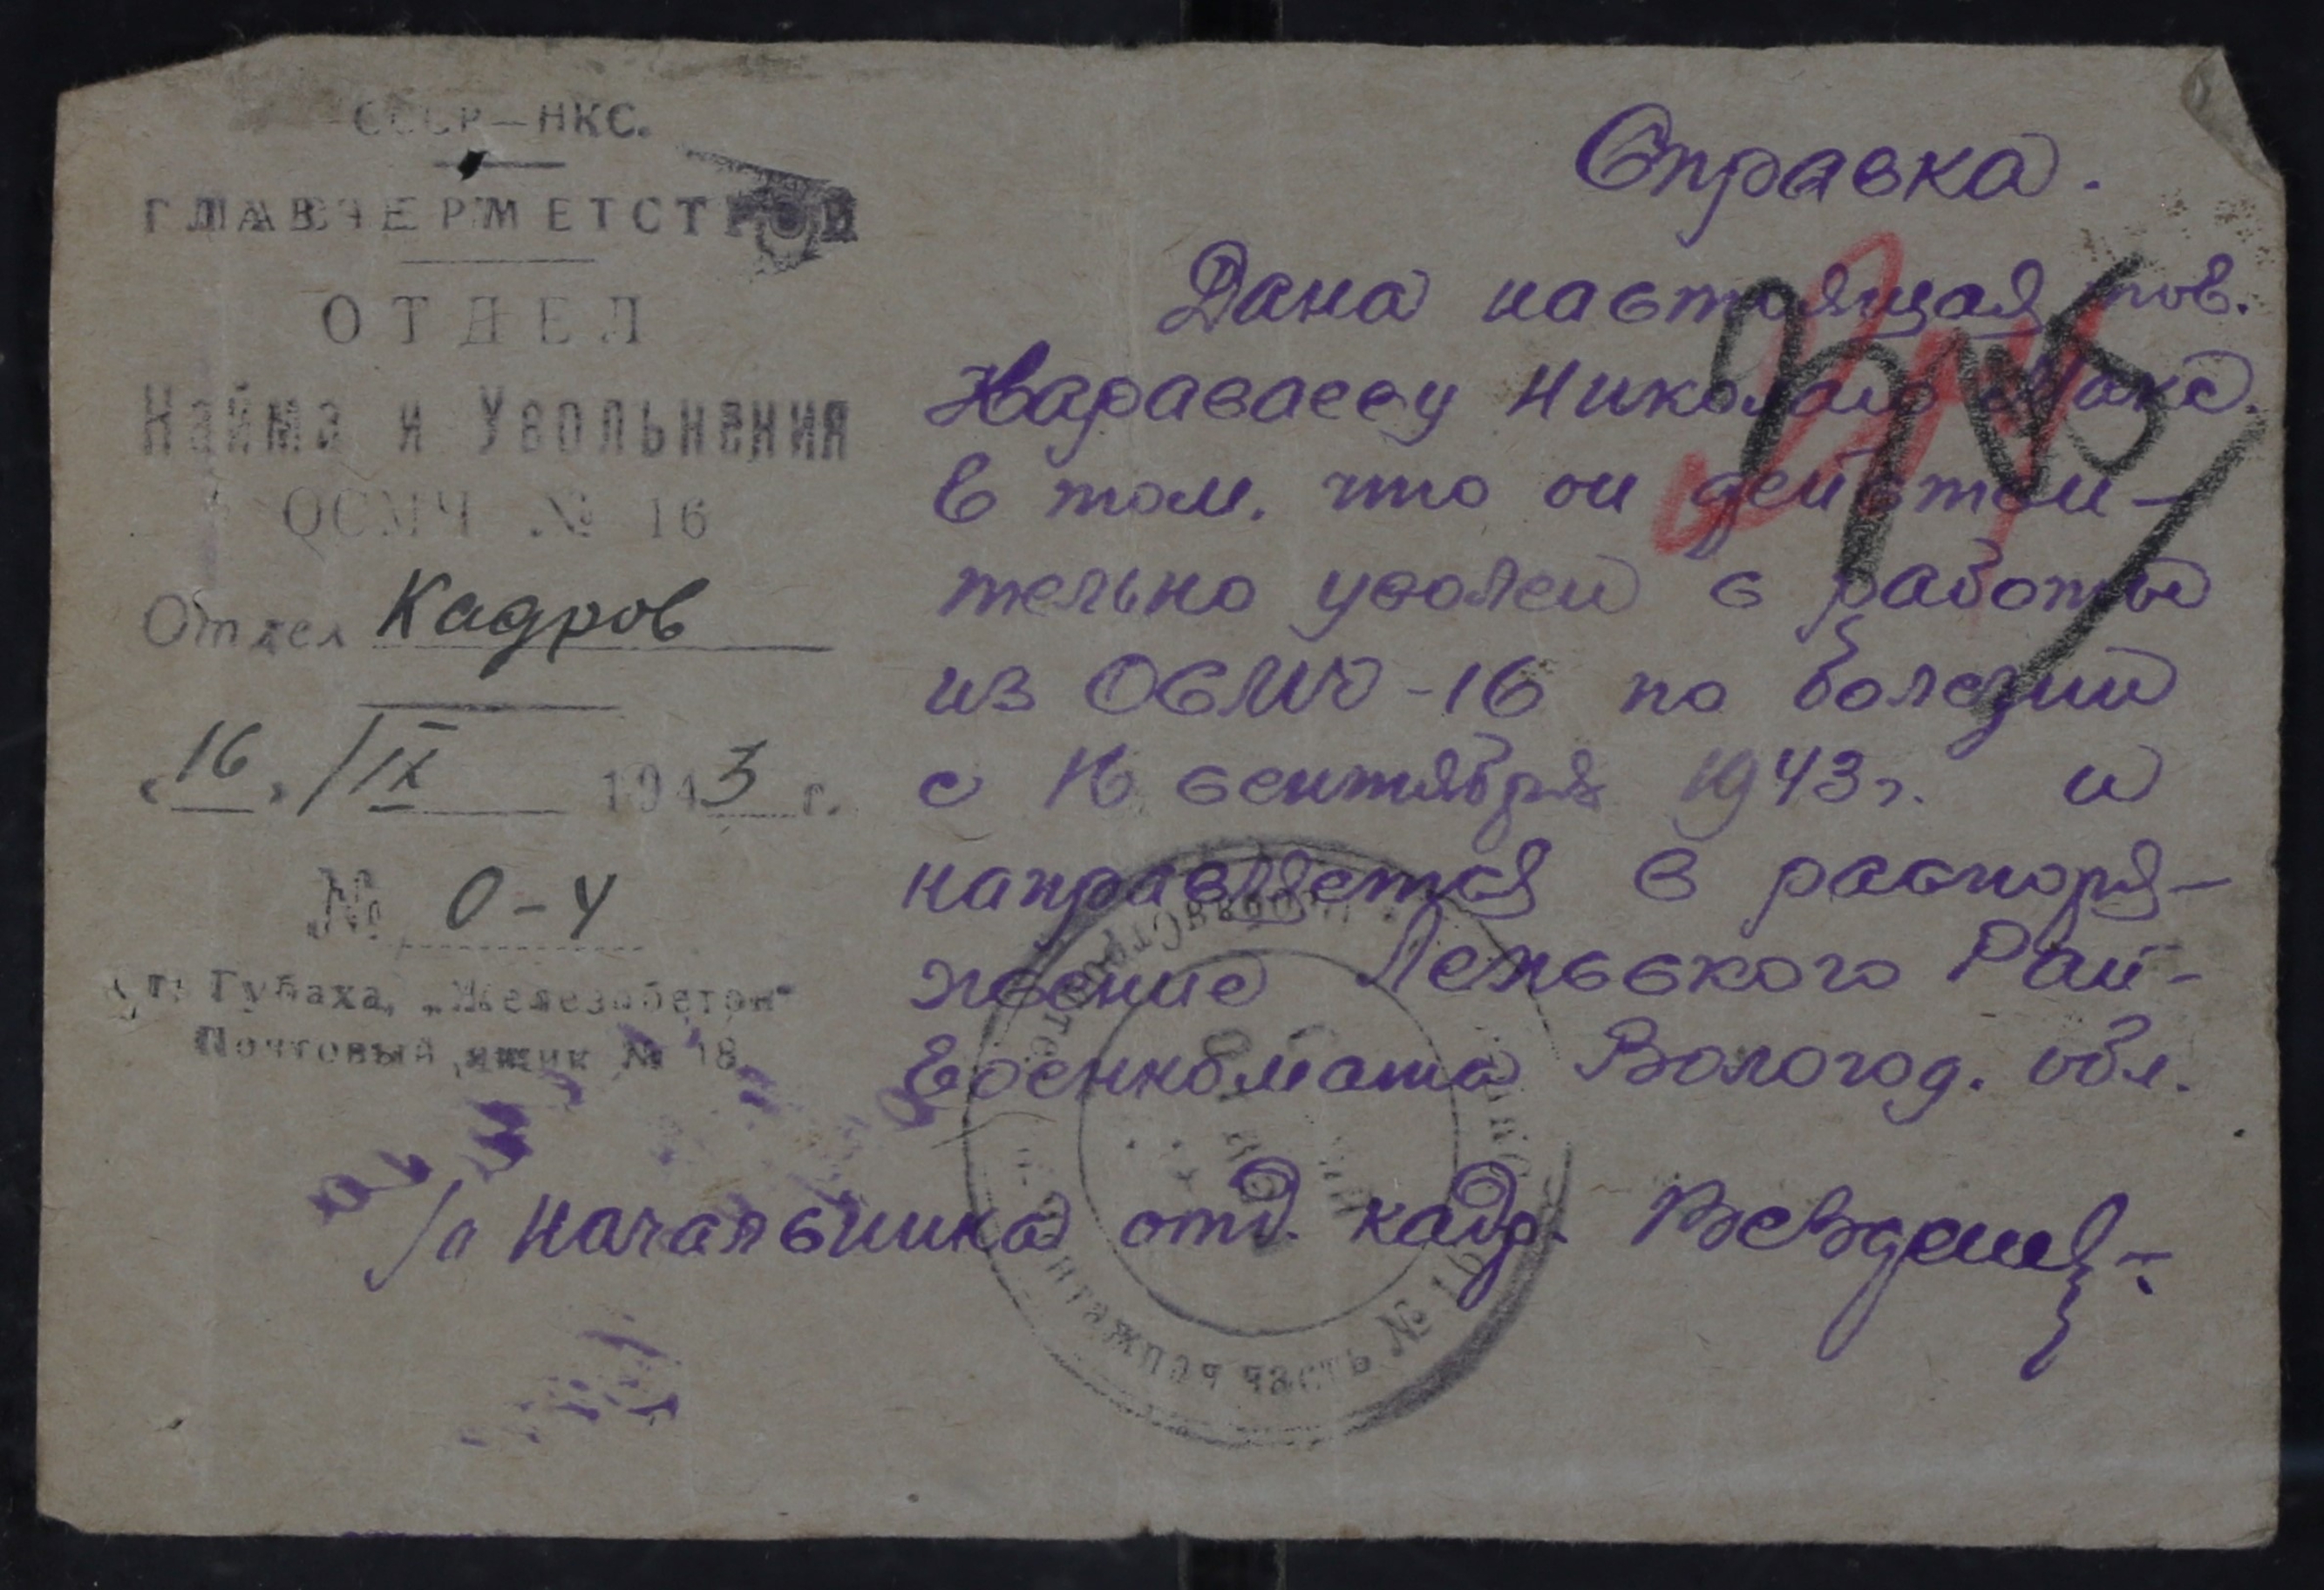 СССР—НКС.
ГЛАВЧЕРМЕТСТРОЙ
ОТДЕЛ
Найма и Увольнения
ОСМЧ № 16
Отдел Кадров
«16» /IX 1943 г.
№ 0-4
г. Губаха, „Железобетон"
Почтовый ящик № 18
Справка.
Дана настоящая тов.
Николаю Макс.
в том. что он действи-
тельно уволен с работы
из ОСМЧ-16 по болезни
с 16 сентября 1943 г. и
направляется в распоря-
жение Райвоенкомата
Военкомата Вологод. обл.
Начальника отд. кадр.
часть № 16